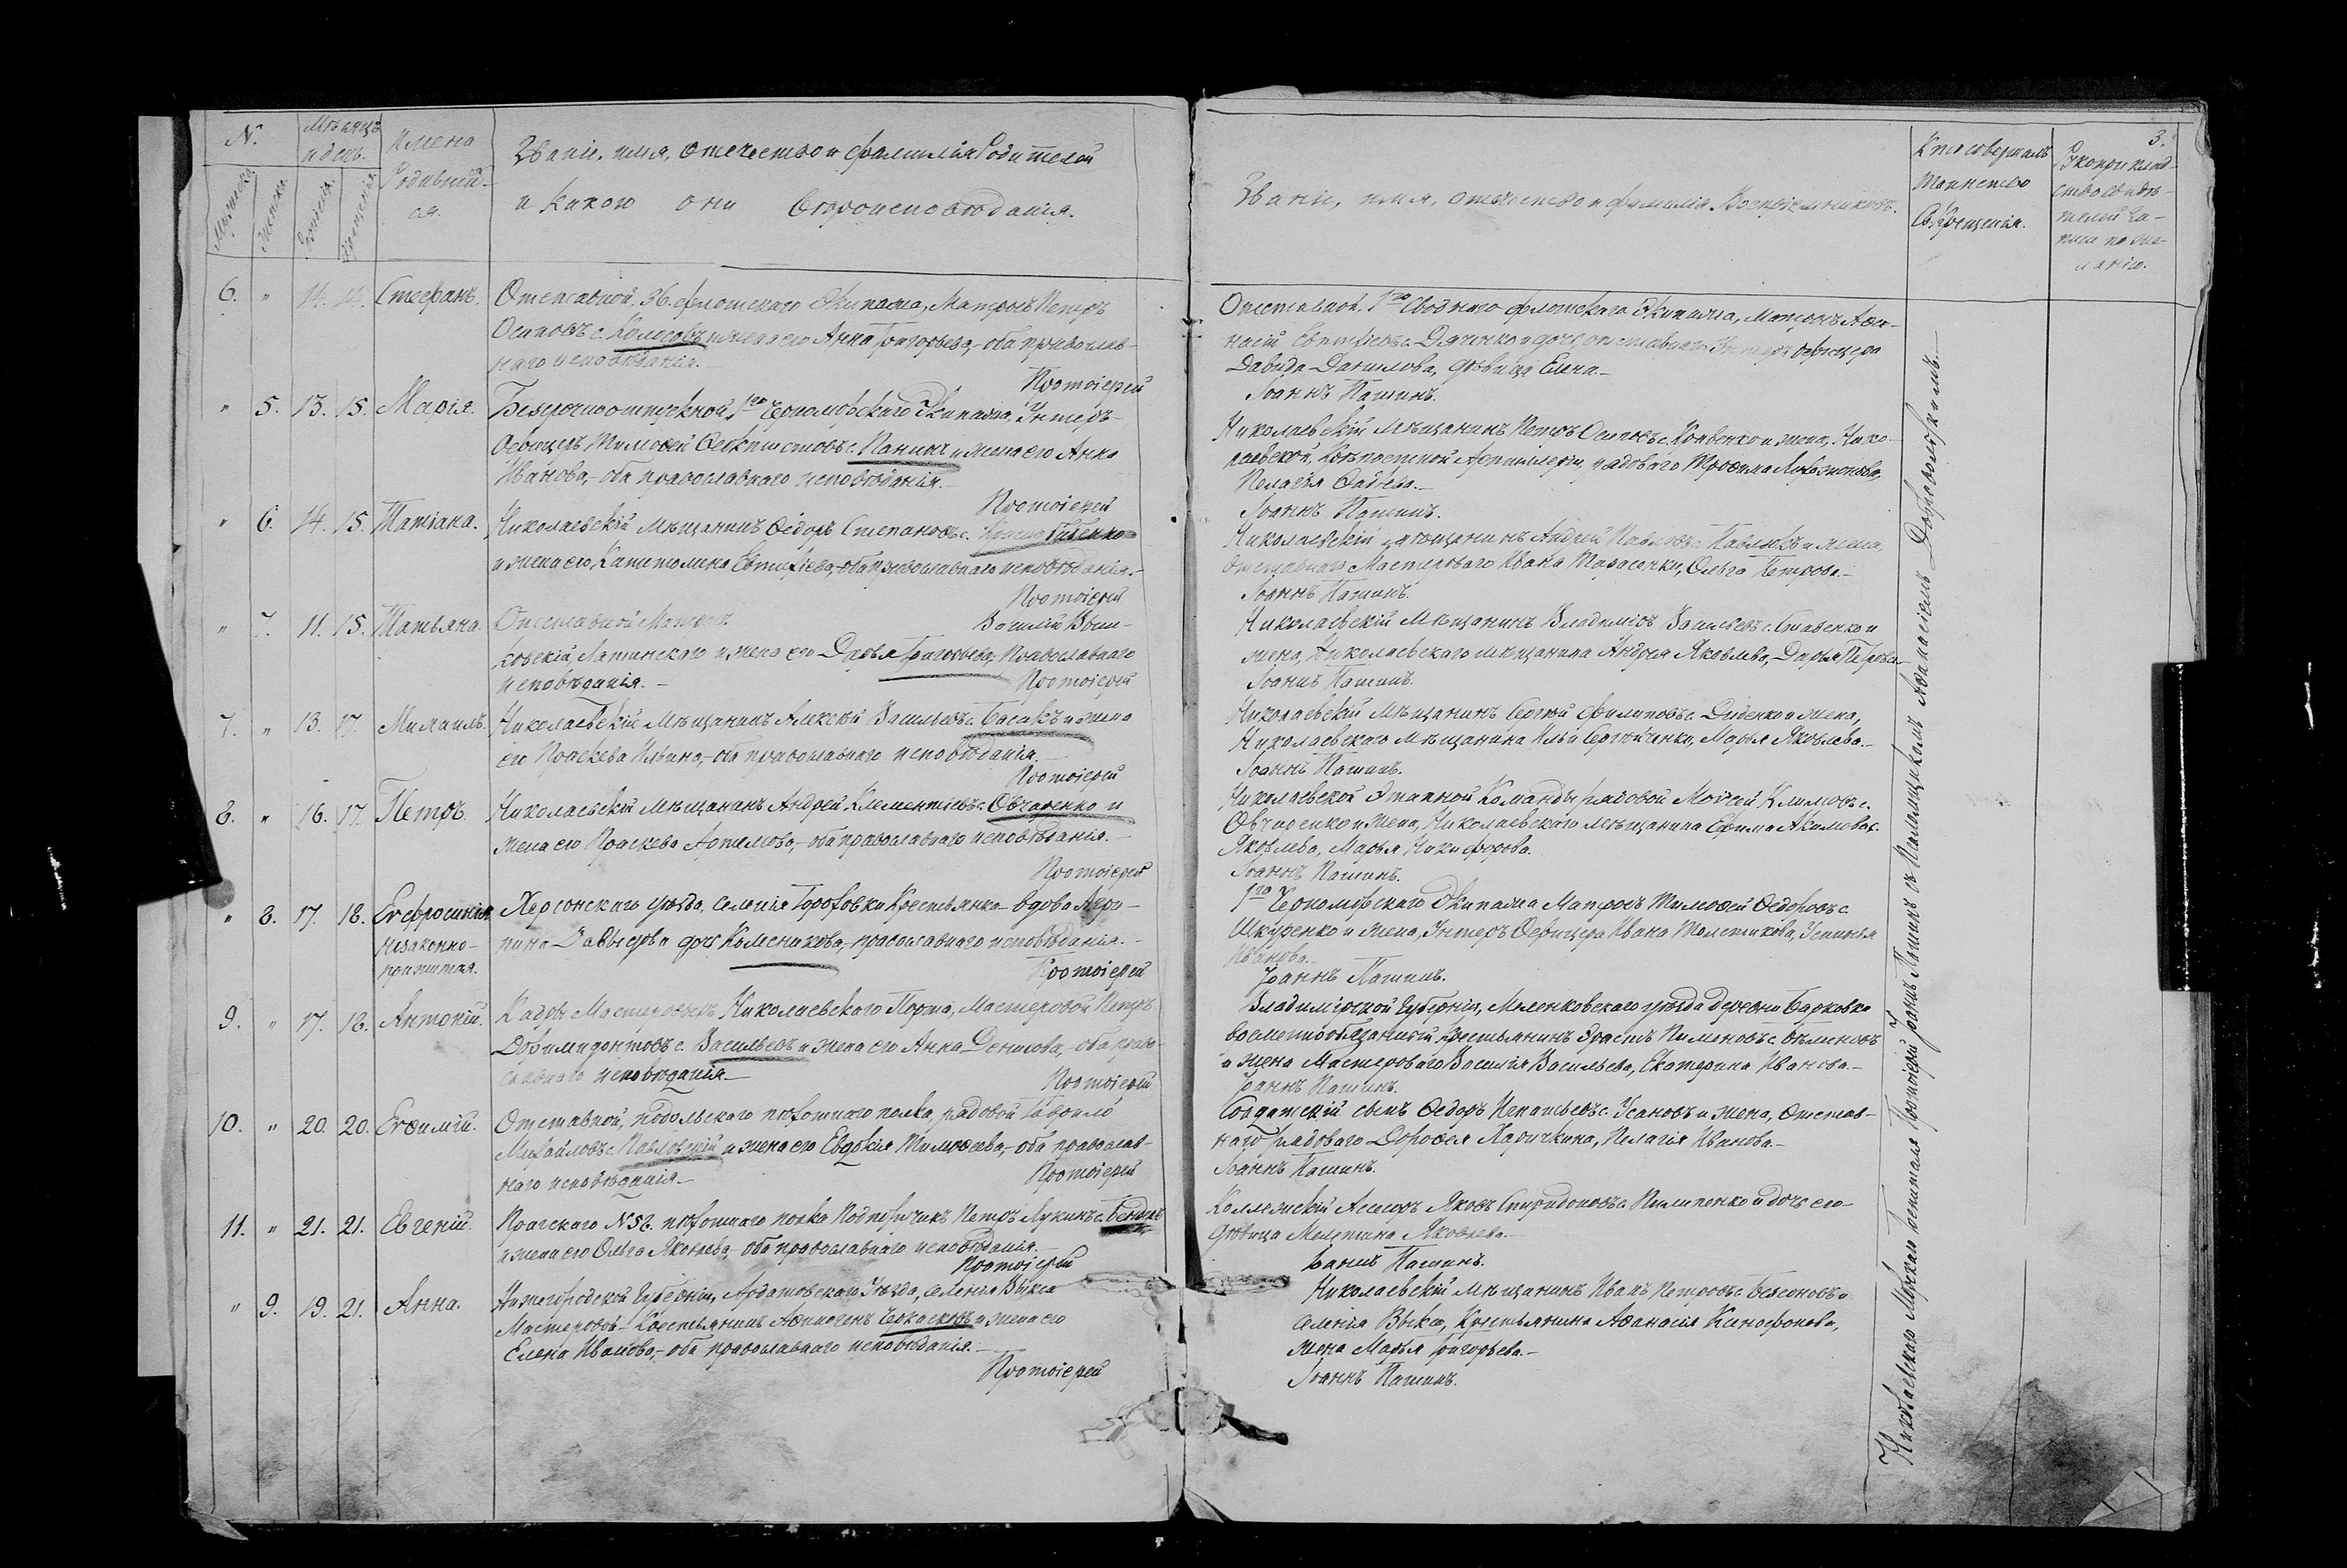 N.
Мѣсяцъ
и день.
Имена
Родивших-
ся.
Званіе, имя, отчество и фамилія Родителей
и какого они вѣроисповѣданія.
Мужска
Женска
Рожденія.
Крещенія.
6. " 14. 14. Стефанъ. Отставной 36. флотскаго Экипажа, Матросъ Петръ
Осиповъ с. Колосовъ и жена его Анна Григорьева,- оба православ-
наго исповѣданія.
Протоіерей
" 5. 13. 15. Марія. Безсрочноотпускной 1го Черноморскаго Экипажа, Унтеръ-
Офицеръ Тимофей с. Панинъ и жена его Анна
Иванова,- оба православнаго исповѣданія.-
Протоіерей
" 6. 14. 15. Татіана. Николаевскій Мѣщанинъ Ѳедоръ Степановъ с.
и жена его Капитолина Евтихіева,- оба православнаго исповѣданія.-
Протоіерей
" 7. 11. 15. Татьяна. Отставной Матросъ Василій Выш-
ковскій, Латинскаго и жена его Дарья Григорьева, Православнаго
исповѣданія.-
Протоіерей
7. " 13. 17. Михаилъ. Николаевскій Мѣщанинъ Алексѣй Васильевъ с. Басакъ и жена
его Праскева Ильина,- оба православнаго исповѣданія.
Протоіерей
8. " 16. 17. Петръ. Николаевскій Мѣщанинъ Андрей Клементіевъ с. Овчаренко и
жена его Праскева Артемова,- оба православнаго исповѣданія.-
Протоіерей
" 8. 17. 18. Евфросинія Херсонскаго уѣзда, селенія Гороховки Крестьянка вдова Агри-
незаконно- пина Давыдова дочь Колесникова,- православнаго исповѣданія.-
рожденная.
Протоіерей
9. " 17. 18. Антоній. Кадръ Мастеровыхъ Николаевскаго Порта, Мастеровой Петръ
с. Васильевъ и жена его Анна Денисова,- оба право-
славнаго исповѣданія.-
Протоіерей
10. " 20. 20. Евѳимій. Отставной, подольскаго пѣхотнаго полка, рядовой Гавріилъ
Михайловъ с. Павловскій и жена его Евдокія Тимофеева,- оба православ-
наго исповѣданія.-
Протоіерей
11. " 21. 21. Евгеній. Прагскаго N 58. пѣхотнаго полка Подпоручикъ Петръ Лукинъ с.
и жена его Ольга Яковлева,- оба православнаго исповѣданія.-
Протоіерей
" 9. 19. 21. Анна. Нижегородской Губерніи, Ардатовскаго Уѣзда, селенія Выкса
Мастеровой- Крестьянинъ Аѳиногенъ Черкасовъ и жена его
Елена Иванова,- оба православнаго исповѣданія.-
Протоіерей
3.
Званіе, имя, отчество и фамилія Воспріемниковъ.
Кто совершалъ
Таинство
Св. Крещенія.
Рукоприклад-
ство свидѣ-
телей за-
писи по же-
ланію.
Отставной 1го Своднаго флотскаго Экипажа, Матросъ Аѳа-
насій с. Дяченко и дочь отставнаго Унтеръ Офицера
Давида Данилова, дѣвица Елена.-
Іоаннъ Пашинъ.
Николаевскій Мѣщанинъ Петръ Осиповъ с. Кравченко и жена, Нико-
лаевской, Крѣпостной Артиллеріи, рядоваго Трофима
Пелагія
Іоаннъ Пашинъ.
Николаевскій мѣщанинъ Андрей Павловъ с. Павловъ и жена,
отставнаго Мастероваго Ивана Тарасенки, Ольга Петрова.-
Іоаннъ Пашинъ.
Николаевскій Мѣщанинъ Владиміръ Васильевъ с. и
жена, Николаевскаго мѣщанина Андрея Яковлева,- Дарья Петрова.
Іоаннъ Пашинъ.
Николаевскій Мѣщанинъ Сергѣй Филиповъ с. Диденко и жена,
Николаевскаго Мѣщанина Ильи Сергѣйченки, Марья Яковлева.-
Іоаннъ Пашинъ.
Николаевской Этапной Команды рядовой Мойсей Климовъ с.
Овчаренко и жена, Николаевскаго мѣщанина Ефима Акимова с.
Яковлева, Марья Никифорова.
Іоаннъ Пашинъ.
1го Черноморскаго Экипажа Матросъ Тимофей Ѳедоровъ с.
Шкуренко и жена, Унтеръ Офицера Ивана Толстикова, Устинья
Иванова.-
Іоаннъ Пашинъ.
Владимірской Губерніи, Меленковскаго уѣзда деревни
временнообязанный Крестьянинъ Эрастъ Пименовъ с.
и жена Мастероваго Василія Васильева, Екатерина Иванова.-
Іоаннъ Пашинъ.
Солдатскій сынъ Ѳедоръ Игнатьевъ с. Усановъ и жена, Отстав-
наго рядоваго Дорофея Ларичкина, Пелагія Иванова.-
Іоаннъ Пашинъ.
Коллежскій Асесоръ Яковъ Спиридоновъ с. Пилипенко и дочь его
дѣвица Яковлева.-
Іоаннъ Пашинъ.
Николаевскій Мѣщанинъ Иванъ Петровъ с. Безсоновъ и
селенія Выксы, Крестьянина Аѳанасія Ксенофонова,
жена Марья Григорьева.-
Іоаннъ Пашинъ.
Николаевскаго Морскаго Госпиталя Протоіерей Іоаннъ Пашинъ съ Псаломщикомъ Аѳанасіемъ Добровольскимъ.-